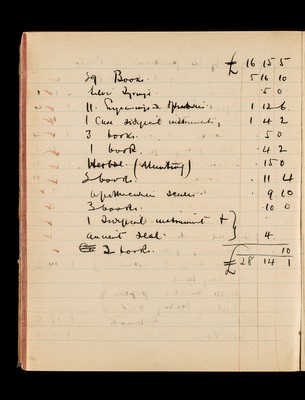 £ 16 15 5
59 Books. 5 16 10
5 0
11 Engravings & 1 12 6
1 Case surgical instruments, 1 4 2
3 books. 5 0
1 book 4 2
Herbal (Munting) 15 0
2 books. 11 4
apothecaries scales 9 10
3 books. 10 0
1 Surgical instrument +
ancient seal. 4
2 books. 10
£ 28 14 1